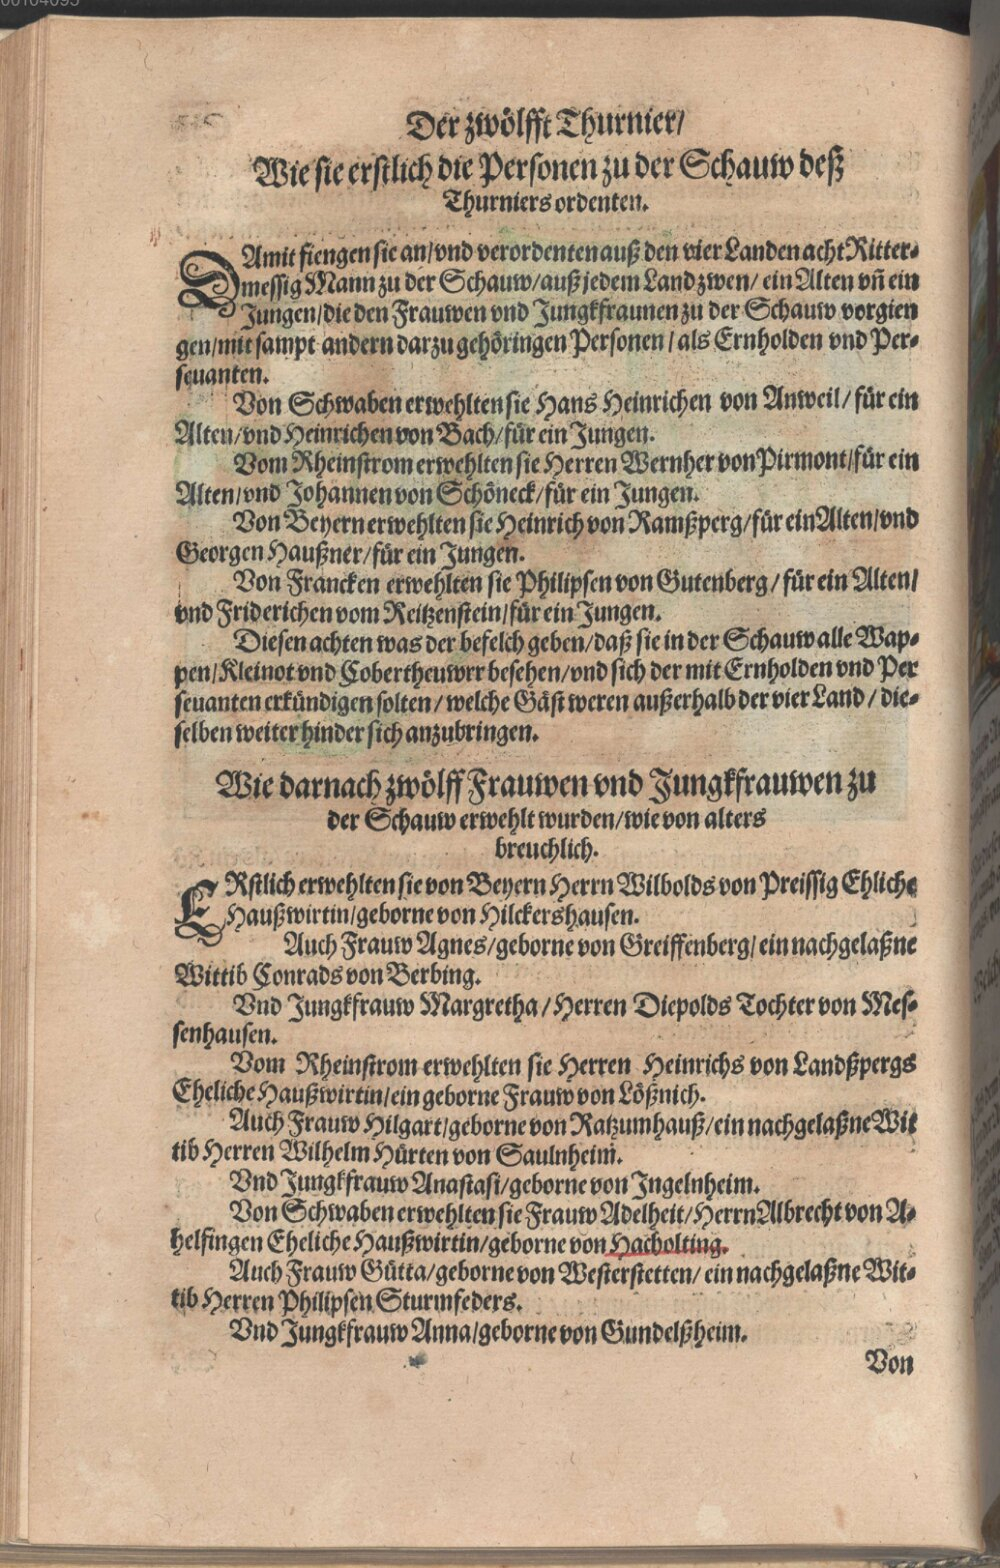 00104095
Der zwölfft Thurnier/
Wie sie erstlich die Personen zu der Schauw deß
Thurniers ordenten.
DAmit fiengen sie an/vnd verordenten auß den vier Landen acht Ritter-
messig Mann zu der Schauw/auß jedem Land zwen/ ein Alten vñ ein
Jungen/die den Frauwen vnd Jungkfraunen zu der Schauw vorgien
gen/mit sampt andern darzu gehöringen Personen / als Ernholden vnd Per-
seuanten.
Von Schwaben erwehlten sie Hans Heinrichen von Anweil/ für ein
Alten/vnd Heinrichen von Bach/für ein Jungen.
Vom Rheinstrom erwehlten sie Herren Wernher von Pirmont/für ein
Alten/vnd Johannen von Schöneck/für ein Jungen.
Von Beyern erwehlten sie Heinrich von Ramßperg/für ein Alten/vnd
Georgen Haußner/für ein Jungen.
Von Francken erwehlten sie Philipsen von Gutenberg/ für ein Alten/
vnd Friderichen vom Reitzenstein/für ein Jungen.
Diesen achten was der befelch geben/daß sie in der Schauw alle Wap-
pen/Kleinot vnd Cobertheuwrr besehen/vnd sich der mit Ernholden vnd Per
seuanten erkündigen solten/ welche Gäst weren außerhalb der vier Land / die-
selben weiter hinder sich anzubringen.
Wie darnach zwölff Frauwen vnd Jungkfrauwen zu
der Schauw erwehlt wurden/wie von alters
breuchlich.
ERstlich erwehlten sie von Beyern Herrn Wilbolds von Preissig Ehliche
Haußwirtin/geborne von Hilckershausen.
Auch Frauw Agnes/geborne von Greiffenberg/ ein nachgelaßne
Wittib Conrads von Berbing.
Vnd Jungkfrauw Margretha/ Herren Diepolds Tochter von Mes-
senhausen.
Vom Rheinstrom erwehlten sie Herren Heinrichs von Landßpergs
Eheliche Haußwirtin/ein geborne Frauw von Lößnich.
Auch Frauw Hilgart/geborne von Ratzumhauß/ein nachgelaßne Wit
tib Herren Wilhelm Hürten von Saulnheim.
Vnd Jungkfrauw Anastasi/geborne von Ingelnheim.
Von Schwaben erwehlten sie Frauw Adelheit/Herrn Albrecht von A-
helfingen Eheliche Haußwirtin/geborne von Hacholting.
Auch Frauw Gütta/geborne von Westerstetten/ ein nachgelaßne Wit-
tib Herren Philipsen Sturmfeders.
Vnd Jungkfrauw Anna/geborne von Gundelßheim.
Von